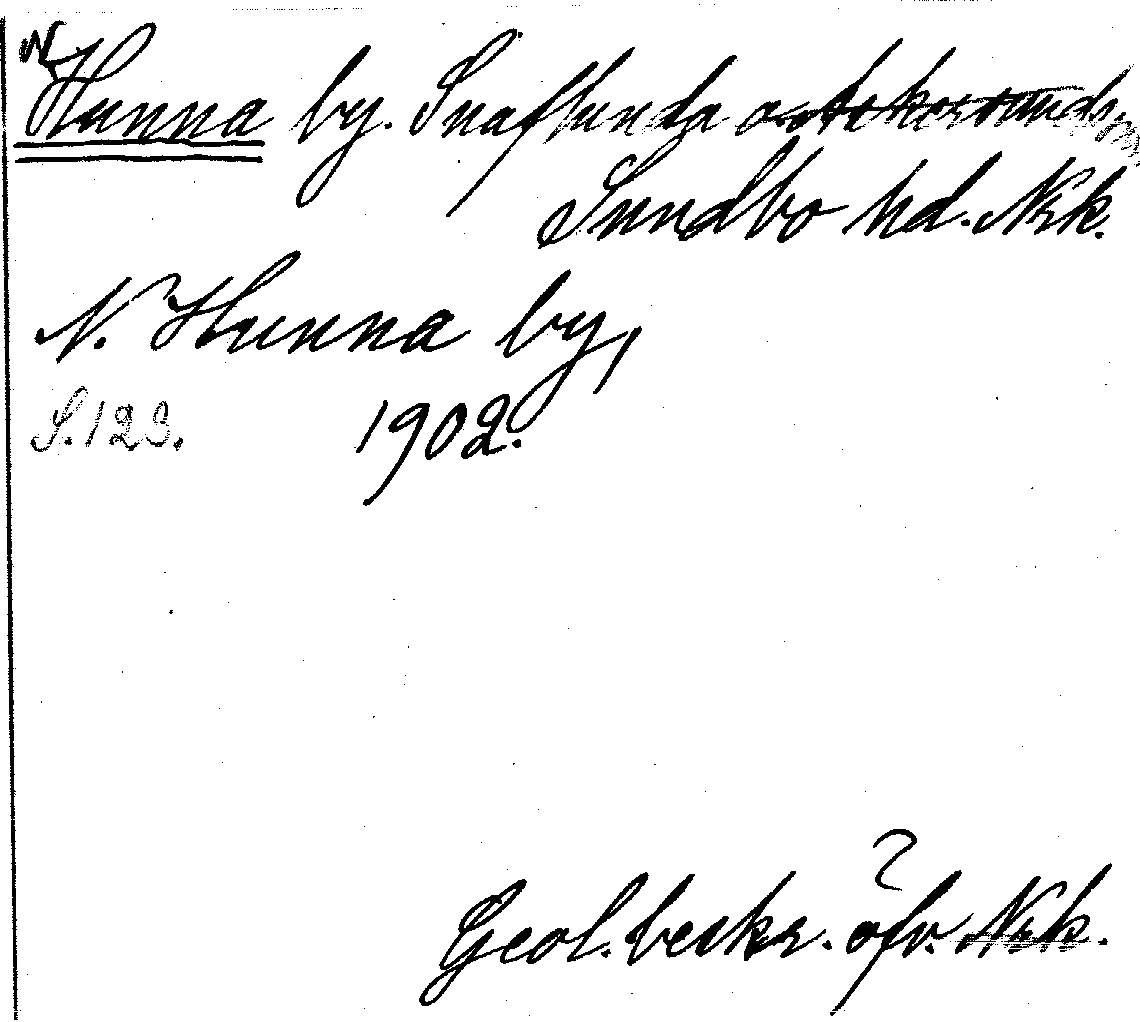 N Hunna by. Snaflunda o. Askersunds,
Sundbo hd. Nrk.
N. Hunna by,
S. 123. 1902.
Geol. beskr. öfv. Nrk.